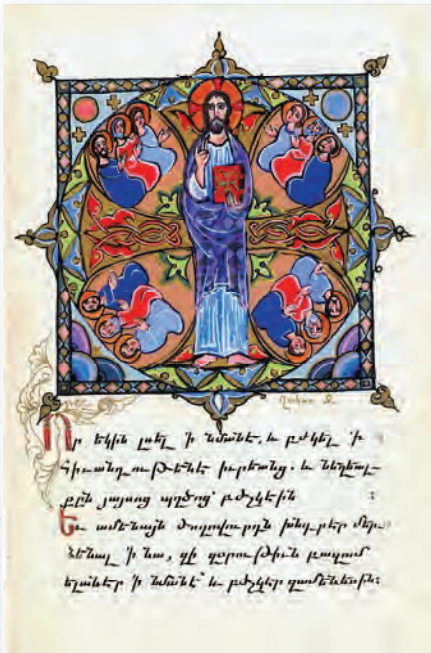 Ղուկաս Զ
Որ եկին լսել ՚ի նմանէ, և բժկել ՚ի
հիւանդութենէ իւրեանց. և նեղեալ-
քըն յայսոց պղծոց բժշկէին :
Եւ ամենայն ժողովուրդն խնդրէր մեր-
ձենալ ՚ի նա, զի զօրութիւն բազում
ելանէր ՚ի նմանէ՝ և բժշկէր զամենեսին: